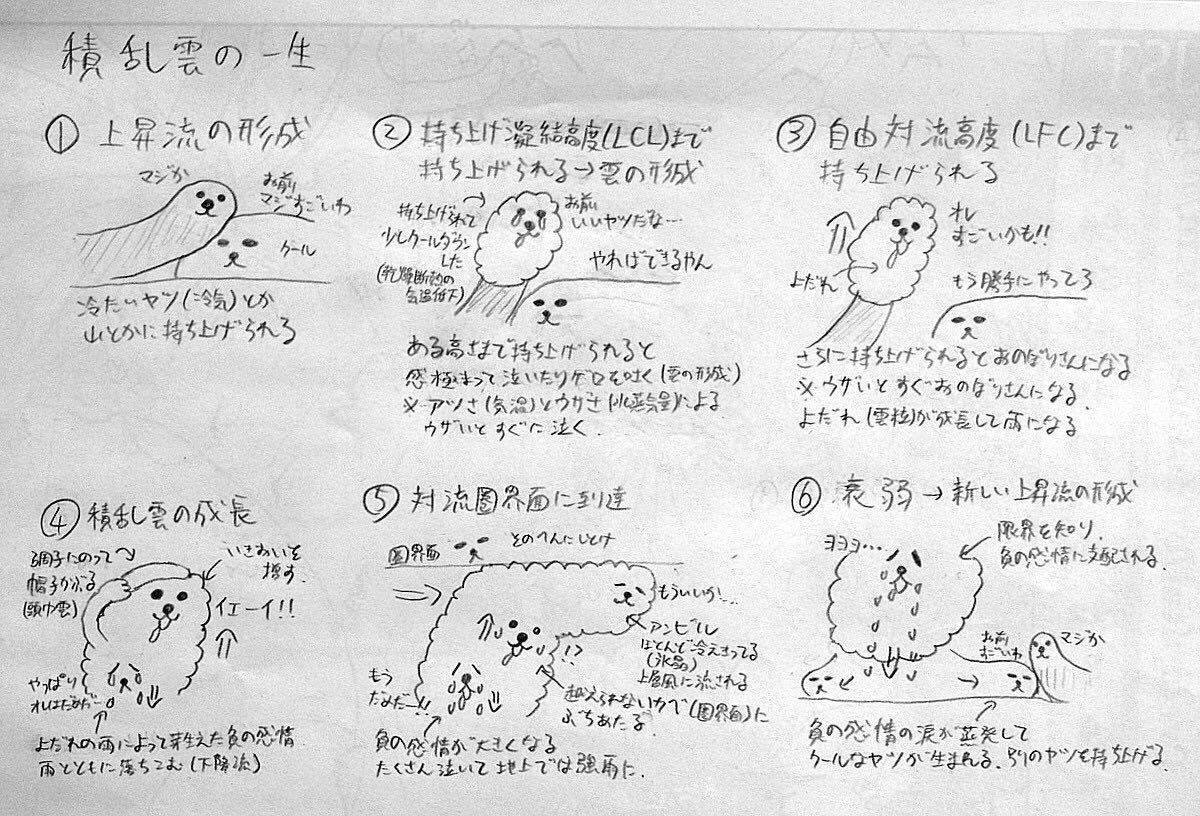 積乱雲の一生
① 上昇流の形成
マジか
お前
マジすごいわ
クール
冷たいヤツ(冷気)とか
山とかに持ち上げられる
② 持ち上げ凝結高度(LCL)まで
持ち上げられる→雲の形成
持ち上げられて
少しクールダウン
した
(乾燥断熱の
気温低下)
お前
いいヤツだな…
やればできるやん
ある高さまで持ち上げられると
感極まって泣いたりゲロを吐く(雲の形成)
※アツさ(気温)とウザさ(水蒸気量)による
ウザいとすぐに泣く.
③ 自由対流高度(LFC)まで
持ち上げられる
オレ
すごいかも!!
よだれ
もう勝手にやってろ
さらに持ち上げられるとおのぼりさんになる
※ウザいとすぐおのぼりさんになる.
よだれ(雲粒)が成長して雨になる
④ 積乱雲の成長
調子にのって
帽子かぶる
(頭巾雲)
いきおいを
増す.
イエーイ!!
やっぱり
オレはだめだ…
よだれの雨によって芽生えた負の感情
雨とともに落ちこむ(下降流)
⑤ 対流圏界面に到達
圏界面
そのへんにしとけ
もういいか…
アンビル
ほとんど冷えきってる
(氷晶)
上層風に流される
!?
越えられないカベ(圏界面)に
ぶちあたる
もう
だめだー!!
負の感情が大きくなる
たくさん泣いて地上では強雨に.
⑥ 衰弱→新しい上昇流の形成
ヨヨヨ…
限界を知り,
負の感情に支配される.
お前
すごいわ
マジか
負の感情の涙が蒸発して
クールなヤツが生まれる.別のヤツを持ち上げる.